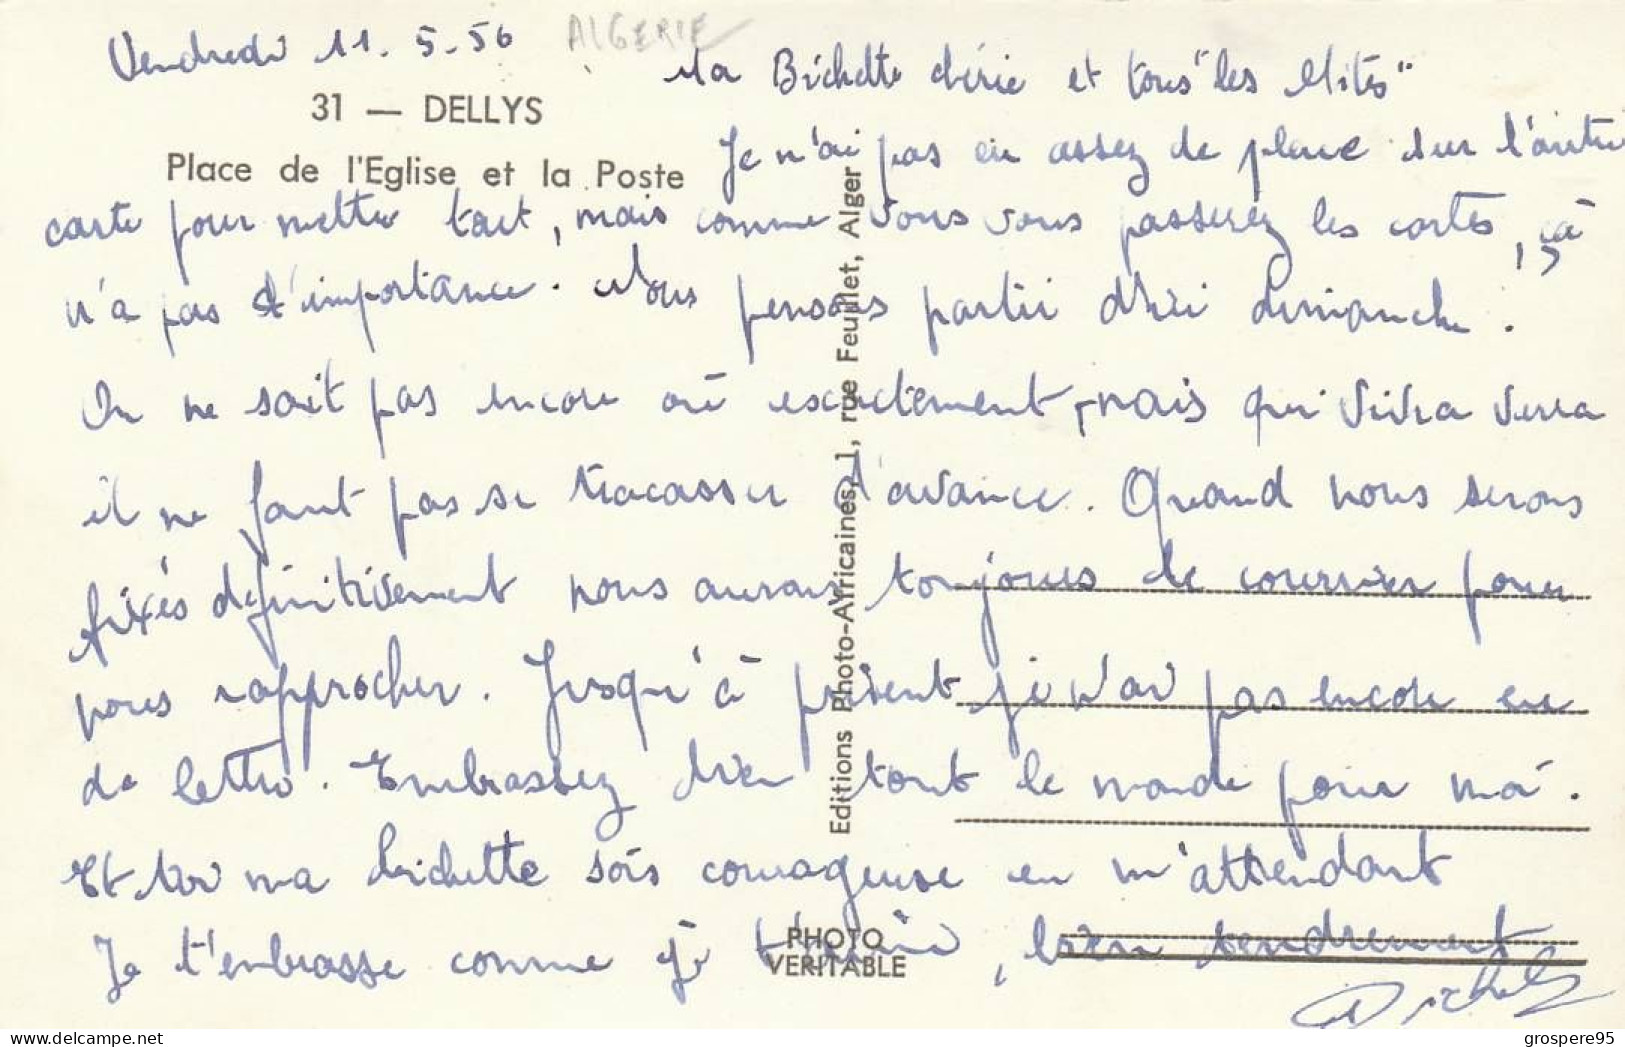 Vendredi 11.5.56 ALGERIE
31 — DELLYS
Place de l'Eglise et la Poste
Ma Bichette chérie et tous "les Mités"
Je n'ai pas eu assez de place sur l'autre
carte pour mettre tout, mais comme vous vous passerez les cartes, çà
n'a pas d'importance. Nous pensons partir d'ici dimanche.
On ne sait pas encore où exactement, mais qui vivra verra
il ne faut pas se tracasser d'avance. Quand nous serons
fixés définitivement nous aurons toujours le courrier pour
nous rapprocher. Jusqu'à présent je n'ai pas encore eu
de lettre. Embrassez bien tout le monde pour moi.
Et toi ma bichette sois courageuse en m'attendant
Je t'embrasse comme je t'aime, bien tendrement
Editions Photo-Africaines, 1, rue Feuillet, Alger
PHOTO
VERITABLE
grospere95